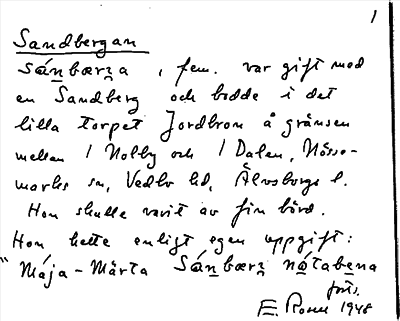 1
Sandbergan
Sánbærna, fem. var gift med
en Sandberg och bodde i det
lilla torpet Jordbron å gränsen
mellan 1 Nolby och 1 Dalen, Nösse-
marks sn, Vedbo hd, Älvsborgs l.
Hon skulle varit av fin börd.
Hon hette enligt egen uppgift:
"Mája-Märta Sánbærn nátabena
forts.
E. Rosell 1948